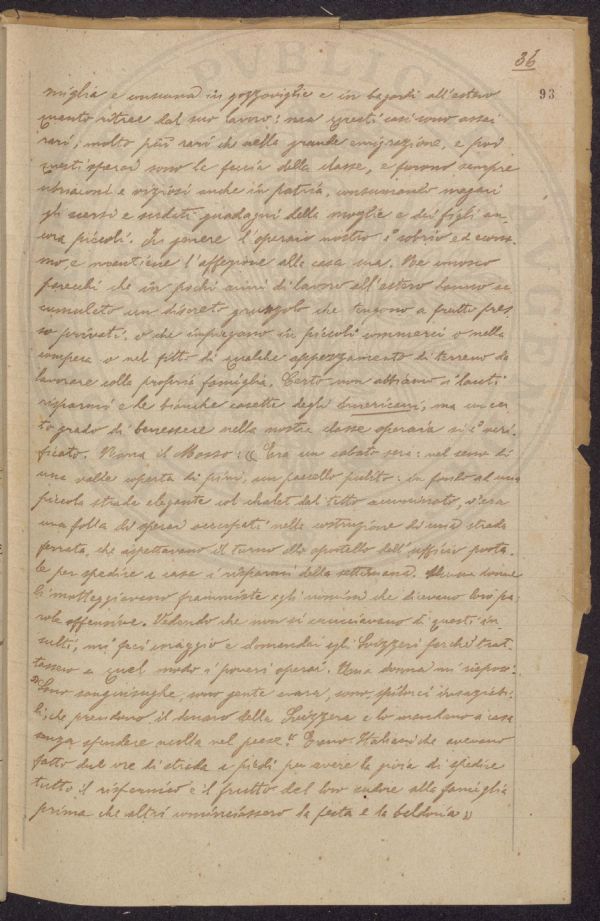 36
93
miglia e consuma in gozzoviglie e in bagordi all'estero
quanto ritrae dal suo lavoro: ma questi casi sono assai
rari, molto più rari che nella grande emigrazione, e poi
questi operai sono la feccia della classe, e furono sempre
ubriaconi e viziosi anche in patria, consumando magari
gli scarsi e sudati guadagni della moglie e dei figli an-
cora piccoli. In genere l'operaio nostro è sobrio ed econo-
mo, e mantiene l'affezione alla casa sua. Ne conosco
parecchi che in pochi anni di lavoro all'estero hanno ac
cumulato un discreto gruzzolo che tengono a frutto pres
so privati, o che impiegano in piccoli commerci o nella
compera o nel fitto di qualche appezzamento di terreno da
lavorare colla propria famiglia. Certo non abbiamo i lauti
risparmi e le bianche casette degli Americani, ma un cer
to grado di benessere nella nostra classe operaia si è veri
ficato. Narra il Mosso: « Era un sabato sera: nel seno di
una valle coperta di pini, un paesello pulito: in fondo ad una
piccola strada elegante col chalet dal tetto acuminato, v'era
una folla di operai occupati nella costruzione di una strada
ferrata, che aspettavano il turno allo sportello dell'ufficio posta-
le per spedire a casa i risparmi della settimana. Alcune donne
li motteggiavano frammiste agli uomini che dicevano loro pa-
role offensive. Vedendo che non si crucciavano di questi in-
sulti, mi feci coraggio e domandai agli Svizzeri perchè trat-
tassero a quel modo i poveri operai. Una donna mi rispose:
"Sono sanguisughe, sono gente avara, sono spilorci insaziabi-
li, che prendono il denaro della Svizzera e lo mandano a casa
senza spendere nulla nel paese." Erano Italiani che avevano
fatto due ore di strada a piedi per avere la gioia di spedire
tutto il risparmio e il frutto del loro sudore alla famiglia
prima che altri cominciassero la festa e la baldoria »
PVBLIC
AVGEN